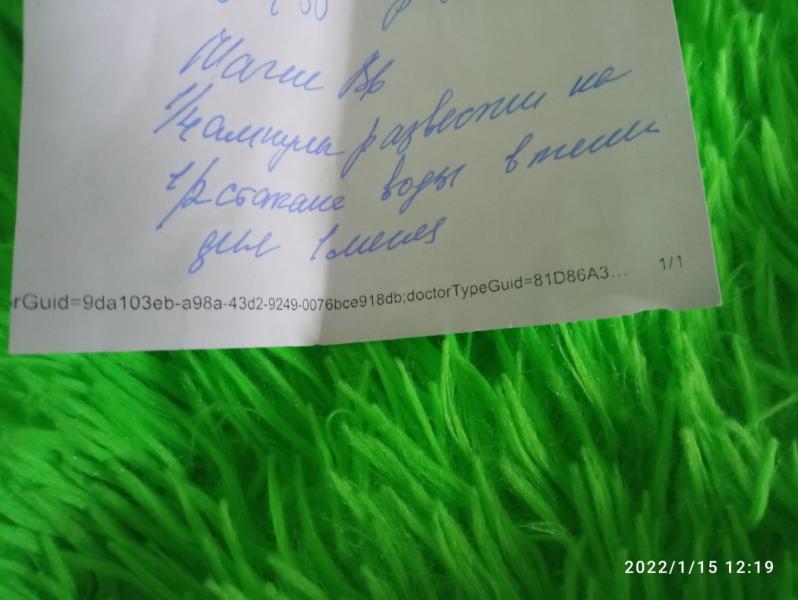 Магне В6
1/4 ампулы развести на
1/2 стакане воды в течении
дня 1 месяц
rGuid=9da103eb-a98a-43d2-9249-0076bce918db;doctorTypeGuid=81D86A3... 1/1
2022/1/15 12:19